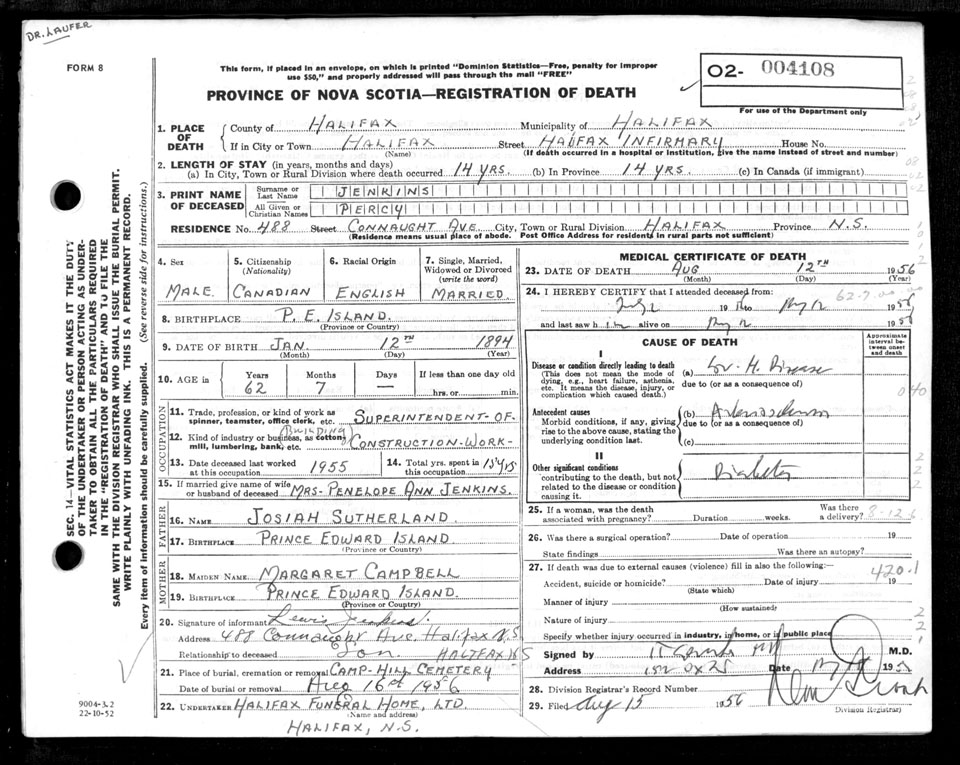 DR. LAUFER
FORM 8
This form, if placed in an envelope, on which is printed "Dominion Statistics—Free, penalty for improper
use $50," and properly addressed will pass through the mail "FREE"
PROVINCE OF NOVA SCOTIA—REGISTRATION OF DEATH
02- 004108
For use of the Department only
1. PLACE OF DEATH
County of HALIFAX Municipality of HALIFAX
If in City or Town HALIFAX Street HALIFAX INFIRMARY House No.
(Name) (If death occurred in a hospital or institution, give the name instead of street and number)
2. LENGTH OF STAY (in years, months and days)
(a) In City, Town or Rural Division where death occurred 14 YRS. (b) In Province 14 YRS. (c) In Canada (if immigrant)
3. PRINT NAME OF DECEASED
Surname or Last Name JENKINS
All Given or Christian Names PERCY
RESIDENCE No. 488 Street CONNAUGHT AVE City, Town or Rural Division HALIFAX Province N.S.
(Residence means usual place of abode. Post Office Address for residents in rural parts not sufficient)
4. Sex MALE
5. Citizenship (Nationality) CANADIAN
6. Racial Origin ENGLISH
7. Single, Married, Widowed or Divorced (write the word) MARRIED
8. BIRTHPLACE P.E. ISLAND
(Province or Country)
9. DATE OF BIRTH JAN. 12TH 1894
(Month) (Day) (Year)
10. AGE in Years 62 Months 7 Days — If less than one day old
hrs. or min.
OCCUPATION
11. Trade, profession, or kind of work as spinner, teamster, office clerk, etc. SUPERINTENDENT-OF-
12. Kind of industry or business, as cotton mill, lumbering, bank, etc. (BUILDING) CONSTRUCTION-WORK-
13. Date deceased last worked at this occupation 1955
14. Total yrs. spent in this occupation 15 YRS
15. If married give name of wife or husband of deceased MRS- PENELOPE ANN JENKINS.
FATHER
16. NAME JOSIAH SUTHERLAND
17. BIRTHPLACE PRINCE EDWARD ISLAND
(Province or Country)
MOTHER
18. MAIDEN NAME MARGARET CAMPBELL
19. BIRTHPLACE PRINCE EDWARD ISLAND.
(Province or Country)
20. Signature of informant Lewis Jenkins.
Address 488 Connaught Ave. Halifax N.S
Relationship to deceased Son HALIFAX NS
21. Place of burial, cremation or removal CAMP-HILL CEMETERY
Date of burial or removal Aug 16th 1956
22. UNDERTAKER HALIFAX FUNERAL HOME, LTD.
(Name and address)
HALIFAX, N.S.
MEDICAL CERTIFICATE OF DEATH
23. DATE OF DEATH AUG 12TH 1956
(Month) (Day) (Year)
24. I HEREBY CERTIFY that I attended deceased from:
19 to 1956
and last saw h im alive on 1956
CAUSE OF DEATH
Approximate interval between onset and death
I
Disease or condition directly leading to death
(This does not mean the mode of dying, e.g., heart failure, asthenia, etc. It means the disease, injury, or complication which caused death.)
(a) H. Disease
due to (or as a consequence of)
040
Antecedent causes
Morbid conditions, if any, giving rise to the above cause, stating the underlying condition last.
(b)
due to (or as a consequence of)
(c)
II
Other significant conditions
contributing to the death, but not related to the disease or condition causing it.
Diabetes
25. If a woman, was the death associated with pregnancy? Duration weeks. Was there a delivery?
8-12-6
26. Was there a surgical operation? Date of operation 19
State findings Was there an autopsy?
27. If death was due to external causes (violence) fill in also the following:—
420.1
Accident, suicide or homicide? Date of injury 19
(State which)
Manner of injury
(How sustained)
Nature of injury
Specify whether injury occurred in industry, in home, or in public place
Signed by M.D.
Address Date 195
28. Division Registrar's Record Number
29. Filed Aug 15 1956
Division Registrar)
SEC. 14—VITAL STATISTICS ACT MAKES IT THE DUTY
OF THE UNDERTAKER OR PERSON ACTING AS UNDER-
TAKER TO OBTAIN ALL THE PARTICULARS REQUIRED
IN THE "REGISTRATION OF DEATH" AND TO FILE THE
SAME WITH THE DIVISION REGISTRAR WHO SHALL ISSUE THE BURIAL PERMIT.
WRITE PLAINLY WITH UNFADING INK. THIS IS A PERMANENT RECORD.
Every item of information should be carefully supplied. (See reverse side for instructions.)
9004-3.2
22-10-52